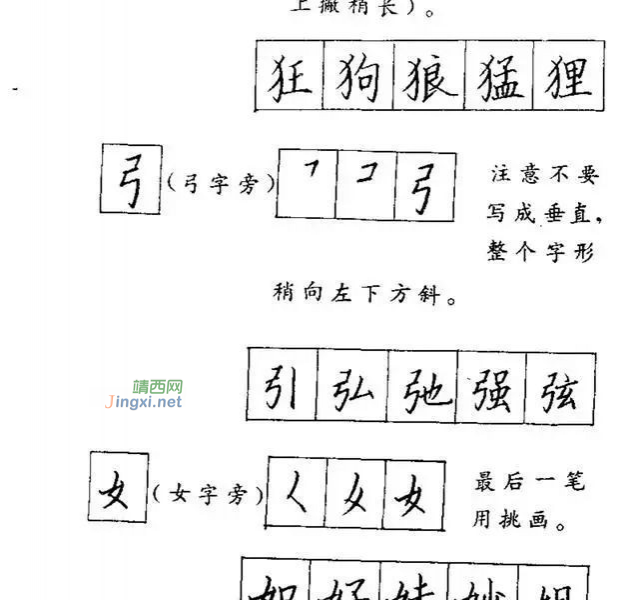 上撇稍长）。
狂 狗 狼 猛 狸
弓（弓字旁）㇕ コ 弓 注意不要
写成垂直，
整个字形
稍向左下方斜。
引 弘 弛 强 弦
靖西网
Jingxi.net
女（女字旁）く 女 最后一笔
用挑画。
如 好 妙 姐